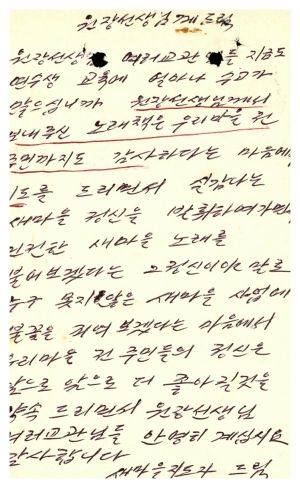 원장선생님께 드림
원장선생 여러교관 들 지금도
연수생 교육에 얼마나 수고가
많으십니까 원장선생님께서
보내주신 노래책은 우리마을 전
주민까지도 감사하다는 마음에
기도를 드리면서 실감나는
새마을 정신을 발휘하여가면
건전한 새마을 노래를
불어보겠다는 그정신이야 말로
누구 못지않은 새마을 사업에
불꽃을 피여보겠다는 마음에서
우리마을 전 주민들의 정신은
앞으로 앞으로 더 좋아질것을
약속 드리면서 원장선생님
여러교관님들 안영히 계십시요
감사합니다
새마을지도자 드림